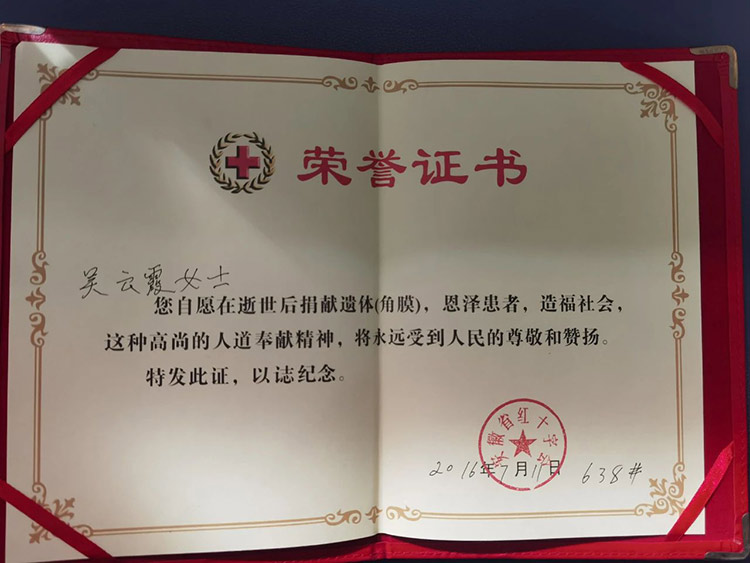 荣誉证书
吴云霞女士
您自愿在逝世后捐献遗体(角膜)，恩泽患者，造福社会，
这种高尚的人道奉献精神，将永远受到人民的尊敬和赞扬。
特发此证，以誌纪念。
安徽省红十字会
2016年7月11日 638#